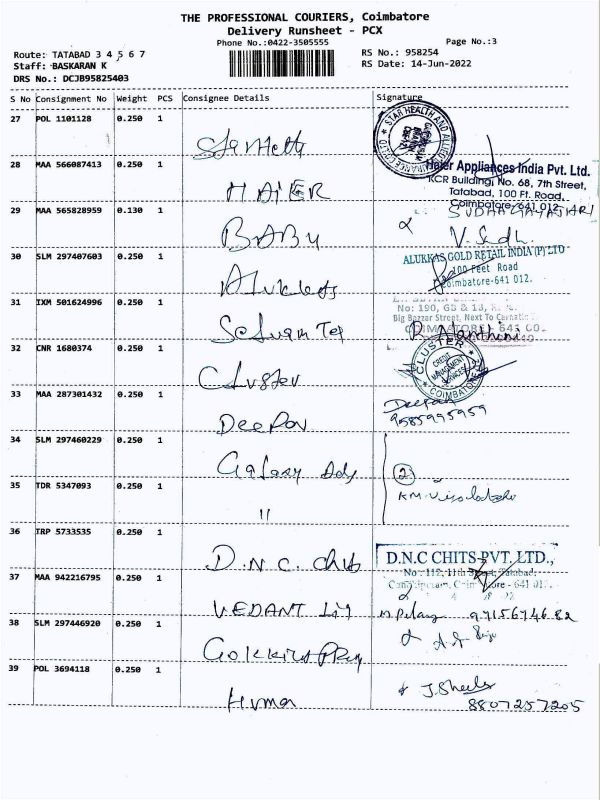 THE PROFESSIONAL COURIERS, Coimbatore
Delivery Runsheet - PCX
Phone No.:0422-3505555 Page No.:3
Route: TATABAD 3 4 5 6 7 RS No.: 958254
Staff: BASKARAN K RS Date: 14-Jun-2022
DRS No.: DCJB95825403
S No Consignment No Weight PCS Consignee Details Signature
27 POL 1101128 0.250 1
STAR HEALTH AND ALLIED
28 MAA 566087413 0.250 1 HAIER
Haier Appliances India Pvt. Ltd.
KCR Building, No. 68, 7th Street,
Tatabad, 100 Ft. Road,
Coimbatore-641 012
29 MAA 565828959 0.130 1 BABU
30 SLM 297407603 0.250 1
ALUKKAS GOLD RETAIL INDIA (P) LTD
100 Feet Road
Coimbatore-641 012.
31 IXM 501624996 0.250 1
No: 190, GB & 13,
Big Bazzar Street, Next To
COIMBATORE - 641 00
32 CNR 1680374 0.250 1 Cluster
CLUSTER
CREDIT
MANAGEMENT
SERVICES
COIMBATORE
33 MAA 287301432 0.250 1 Deepan
Deepan
9585995959
34 SLM 297460229 0.250 1 Galaxy Ads
2
35 TDR 5347093 0.250 1 "
36 TRP 5733535 0.250 1 D.N.C. Chits
D.N.C CHITS PVT. LTD.,
No: 112, 11th Street, Tatabad,
37 MAA 942216795 0.250 1 VEDANT
9715674682
38 SLM 297446920 0.250 1
39 POL 3694118 0.250 1 Huma
J. Sheela
8807257205